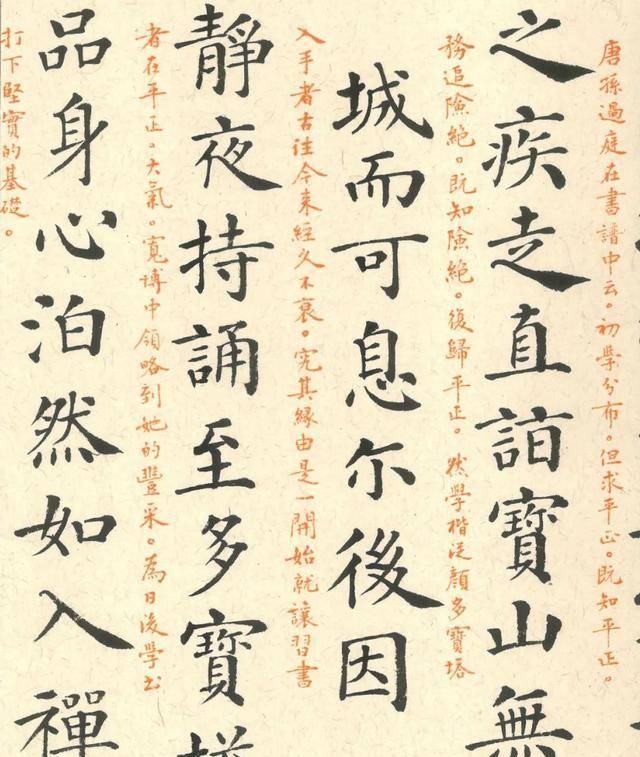 唐孫過庭在書譜中云。初學分布。但求平正。既知平正。
之疾走直詣寶山無
務追險絕。既知險絕。復歸平正。然學楷從顏多寶塔
城而可息尔後因
入手者古往今來經久不衰。究其緣由是一開始就讓習書
靜夜持誦至多寶
者在平正。大氣。寬博中領略到她的豐采。為日後學书
品身心泊然如入禪
打下堅實的基礎。